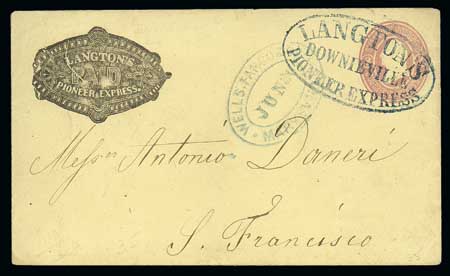 LANGTON'S
PAID
PIONEER EXPRESS.
WELLS, FARGO
JUN
MAR
LANGTON'S
DOWNIEVILLE
PIONEER EXPRESS
Messrs Antonio Daneri
S. Francisco